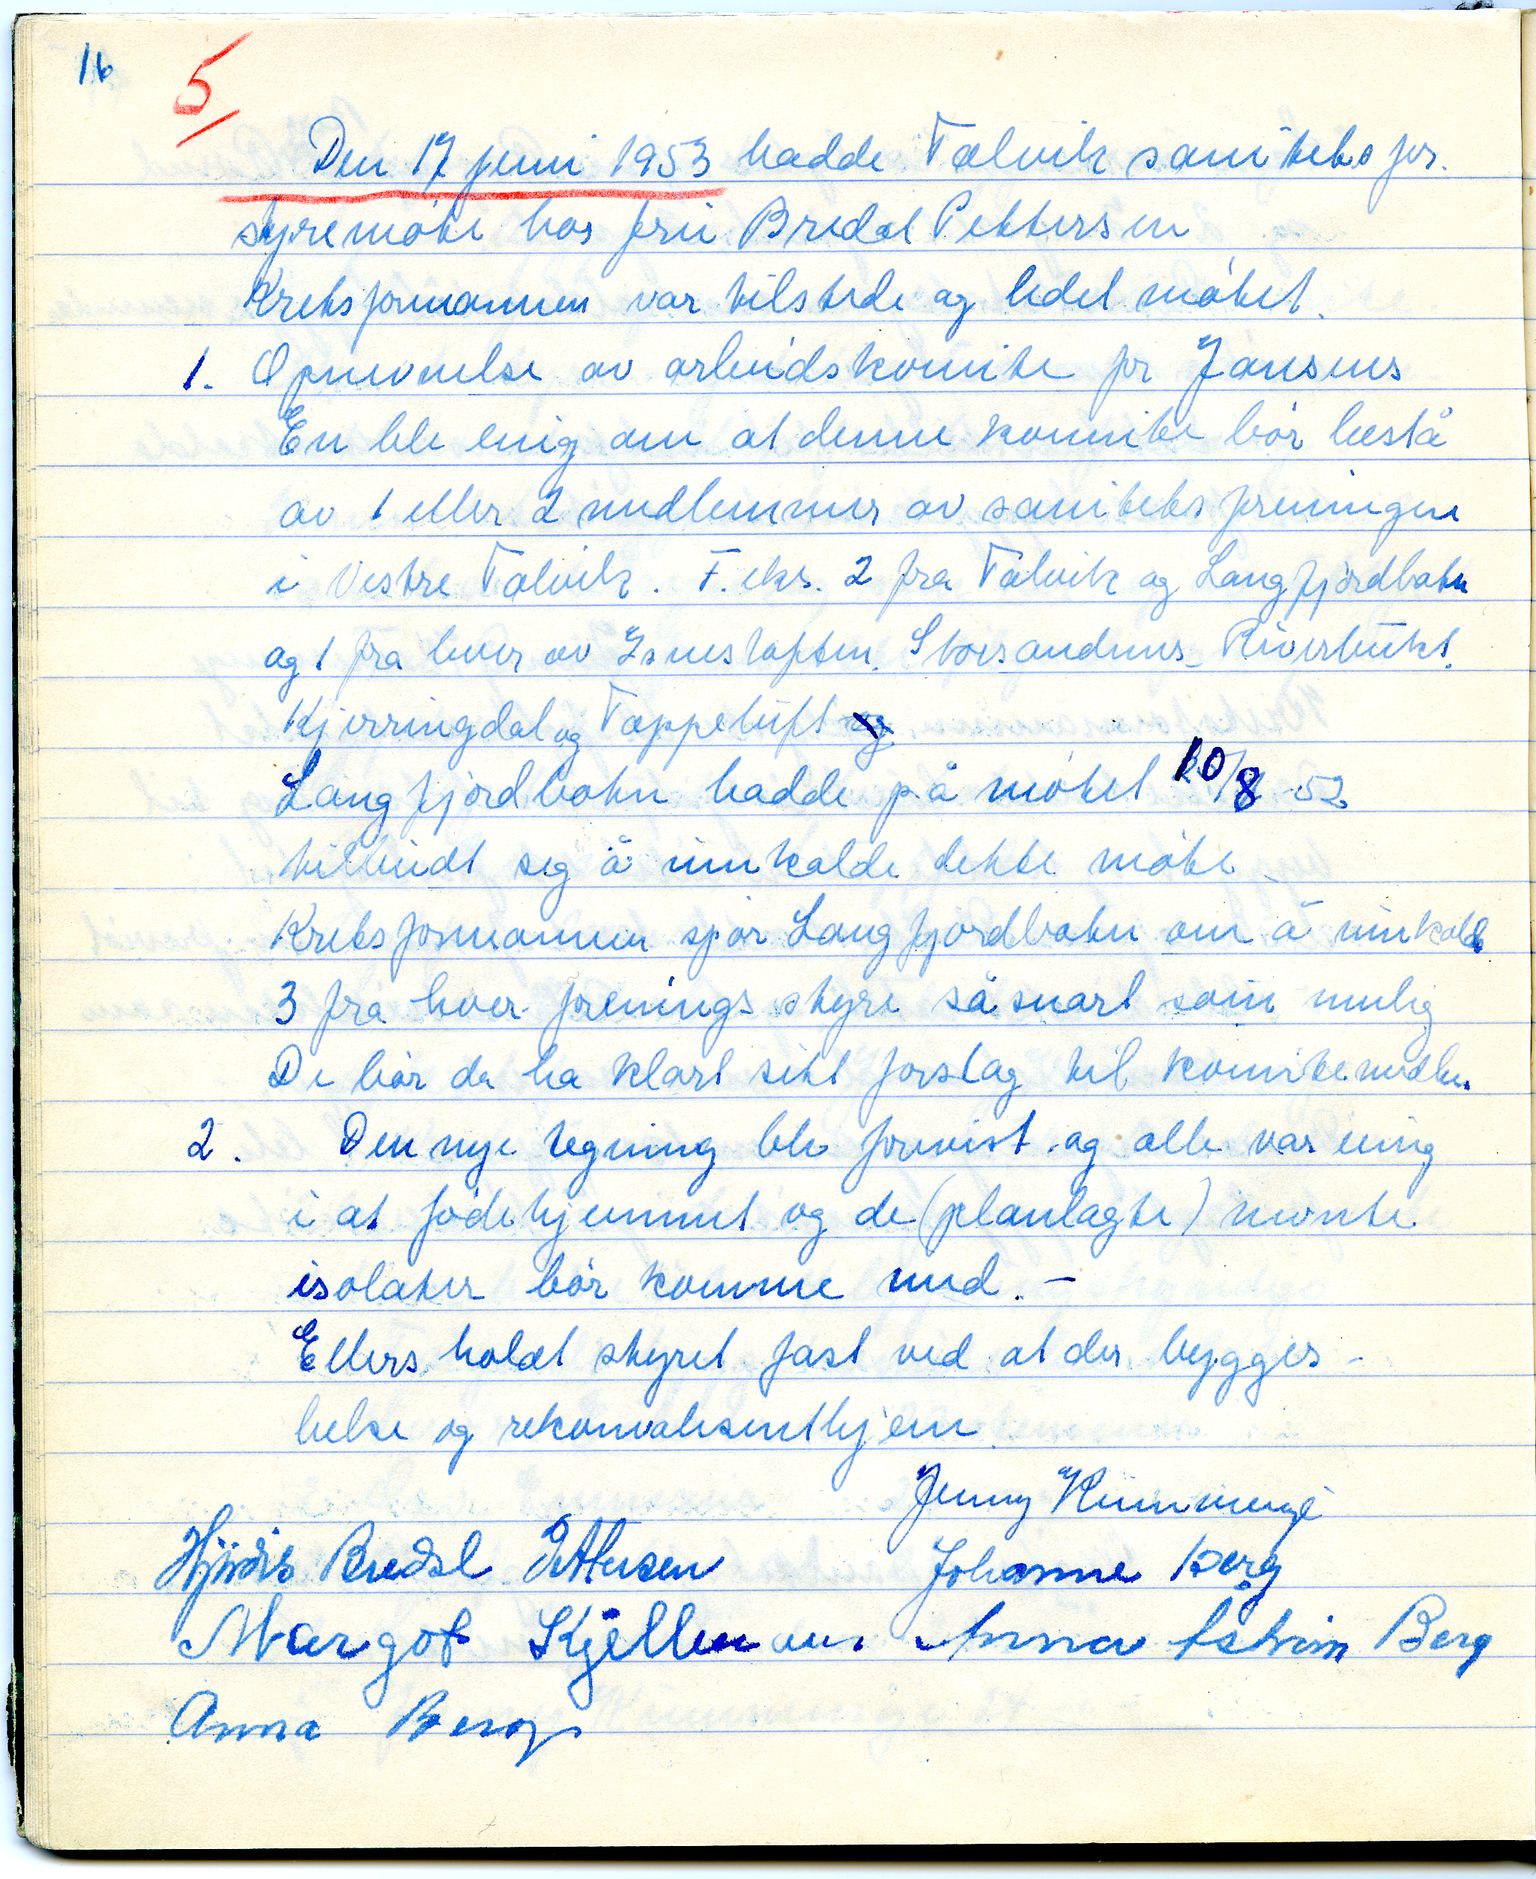 16
5/
Den 17 juni 1953 hadde Talvik sanitets for.
styremøte hos fru Bredal Pettersen
Kretsformannen var tilstede og ledet møtet.
1. Opnevnelse av arbeidskomite for Jansens
En ble enig om at denne komite bør bestå
av 1 eller 2 medlemmer av sanitetsforeningene
i Vestre Talvik. F. eks. 2 fra Talvik og Langfjordbotn
og 1 fra hver av Isnestoften. Storsandnes Riverbukt.
Kjerringdal og Tappeluft og
Langfjordbotn hadde på møtet 10/8 52
tilbudt seg å innkalde dette møte
Kretsformannen spør Langfjordbotn om å innkalde
3 fra hver forenings styre så snart som mulig
De bør da ha klart sitt forslag til komitemedlem.
2. Den nye tegning ble forevist og alle var enig
i at fødehjemmet og de (planlagte) mente
isolater bør komme med. -
Ellers holdt styret fast ved at der bygges -
helse og rekonvalesenthjem
Jenny Kummeneje
Hjørdis Bredal Pettersen Johanne Berg
Margot Kjellmann Anna Østrøm Berg
Anna Berg